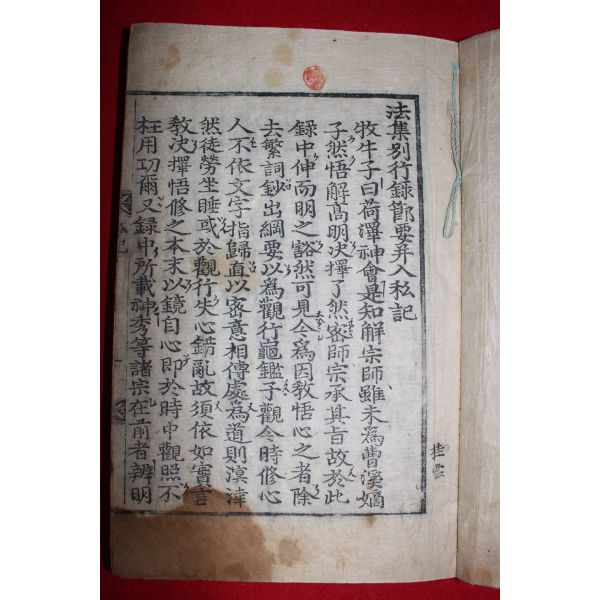 法集別行錄節要幷入私記
牧牛子曰荷澤神會是知解宗師雖未爲曹溪嫡
子然悟解高明决擇了然密師宗承其旨故於此
錄中伸而明之豁然可見今爲因敎悟心之者除
去繁詞鈔出綱要以爲觀行龜鑑予觀今時修心
人不依文字指歸直以密意相傳處爲道則溟涬
然徒勞坐睡或於觀行失心錯亂故須依如實言
敎决擇悟修之本末以鏡自心即於時中觀照不
枉用功爾又錄中所載神秀等諸宗在前者辨明
私記
桂雲